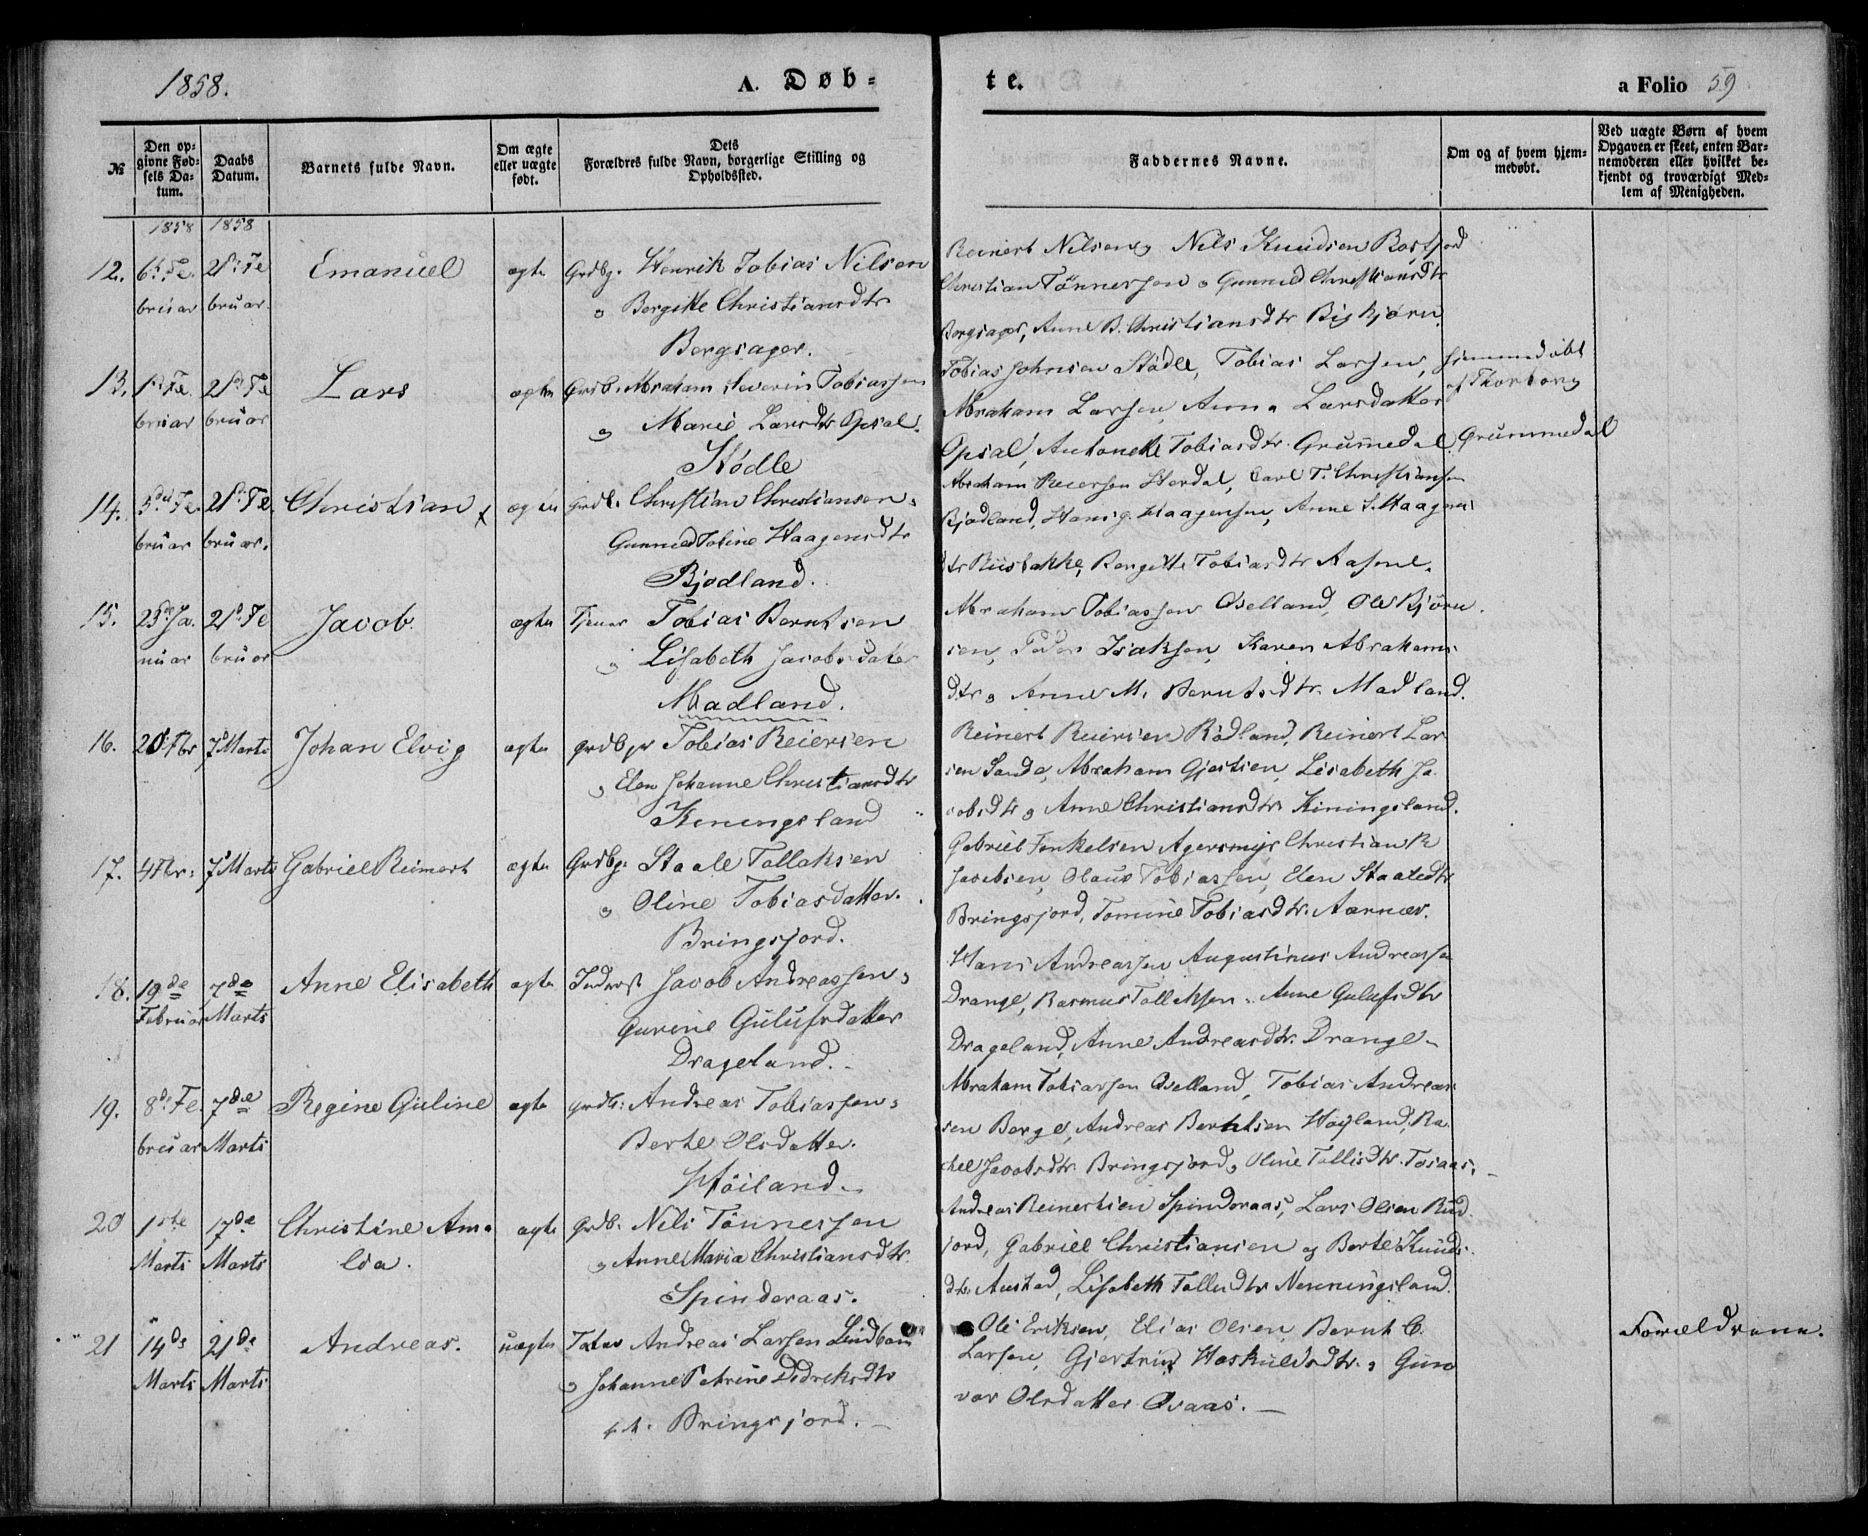 1858.
A. Døb-
te.
a Folio 59
№
Den op-
givne Fød-
sels Da-
tum.
Daabs
Datum.
Barnets fulde Navn.
Om ægte
eller uægte
født.
Dets
Forældres fulde Navn, borgerlige Stilling og
Opholdssted.
Faddernes Navne.
Om og af hvem hjem-
medøbt.
Ved uægte Børn af hvem
Opgaven er skeet, enten Bar-
nemoderen eller hvilket be-
kjendt og troværdigt Med-
lem af Menigheden.
1858 1858
12. 6te Fe- 21de Fe
bruar bruar
Emanuel
ægte
Grdbg. Henrik Tobias Nilsen
og Bergitte Christiansdtr
Bergsager.
Reinert Nilsen og Nils Knudsen Rosfjord
Christian Tønnessen og Gunned Christiansdtr
Bergsager, Anne B. Christiansdtr Big Bjørn.
13. 1ste Fe. 21de Fe
bruar bruar
Lars
ægte
Grdb. Abraham Severin Tobiassen
og Marie Larsdtr Opsal.
Stødle
Tobias Johnsen Stødle, Tobias Larsen,
Abraham Larsen, Anna Larsdatter
Opsal, Antonette Tobiasdtr. Grummedal
hjemmedøbt
af Thorborg
Grummedal
14. 5de Fe. 21de Fe.
bruar bruar.
Christian
ægte
Grdb. Christian Christiansen og
Gunned Tobine Haagensdtr
Bjodland.
Abraham Reiersen Herdal, Carl T. Christiansen
Bjodland, Hans g. Haagensen, Anne S. Haagens
dtr Riisbakke, Bergitte Tobiasdtr Aasene.
15. 23de Ja. 21de Fe
nuar bruar
Jacob.
ægte
Tjener Tobias Berntsen
og Lisabeth Jacobsdatter
Madland.
Abraham Tobiassen Qvelland, Ole Bjørn
sen, Peder Isaksen, Karen Abrahams
dtr og Anne M. Berntsdtr. Madland.
16. 20 Fbr 7de Marts
Johan Elvig
ægte
Grdbgr Tobias Reiersen
og Elen Johanne Christiansdtr
Keningsland
Reinert Reiersen Rødland, Reinert Lar
sen Sande, Abraham Gjertsen, Lisabeth Ja-
cobsdtr og Anne Christiansdtr Kiningsland.
17. 4 Fbr. 7de Marts
Gabriel Reinert
ægte
Grdbg. Staale Tollaksen
og Oline Tobiasdatter.
Bringsjord.
Gabriel Tenkelsen Agersmyr Christian R
Jacobsen, Olaus Tobiassen, Elen Staaledtr
Bringsjord, Tomine Tobiasdtr. Aarnæs.
18. 19de 7de
Februar Marts
Anne Elisabeth
ægte
Inderst Jacob Andreassen og
Gurine Gulufsdatter
Drageland.
Hans Andreassen Augustinus Andreassen
Drange, Rasmus Tollaksen, Anne Gulufsdtr
Drageland, Anne Andreasdtr. Drange
19. 8de Fe. 7de
bruar Marts
Regine Guline
ægte
Grdb. Andreas Tobiassen og
Berte Olsdatter.
Høiland.
Abraham Tobiassen Qvelland, Tobias Andreas
sen Berge, Andreas Berntsen Høyland, Ra
chel Jacobsdtr. Bringsjord og Oline Tollisdtr. Tosaas.
20 1ste 7de
Marts Marts
Christine Ama
lia.
ægte
Grdb. Nils Tønnessen
og Anne Maria Christiansdtr
Spinderaas.
Andreas Reinertsen Spinderaas, Lars Olsen Rud
jord, Gabriel Christiansen og Berte Knuds
dtr Austad, Lisabeth Tollisdtr Nenningsland.
21 14de 21de
Marts Marts
Andreas.
uægte
Tater Andreas Larsen Lindbom
og Johanne Petrine Didriksdtr
Bringsjord.
Ole Eriksen, Elias Olsen, Bernt C.
Larsen, Gjertrud Haskildsdtr. og Gun
vor Olsdatter Qvaas.
Forældrene.